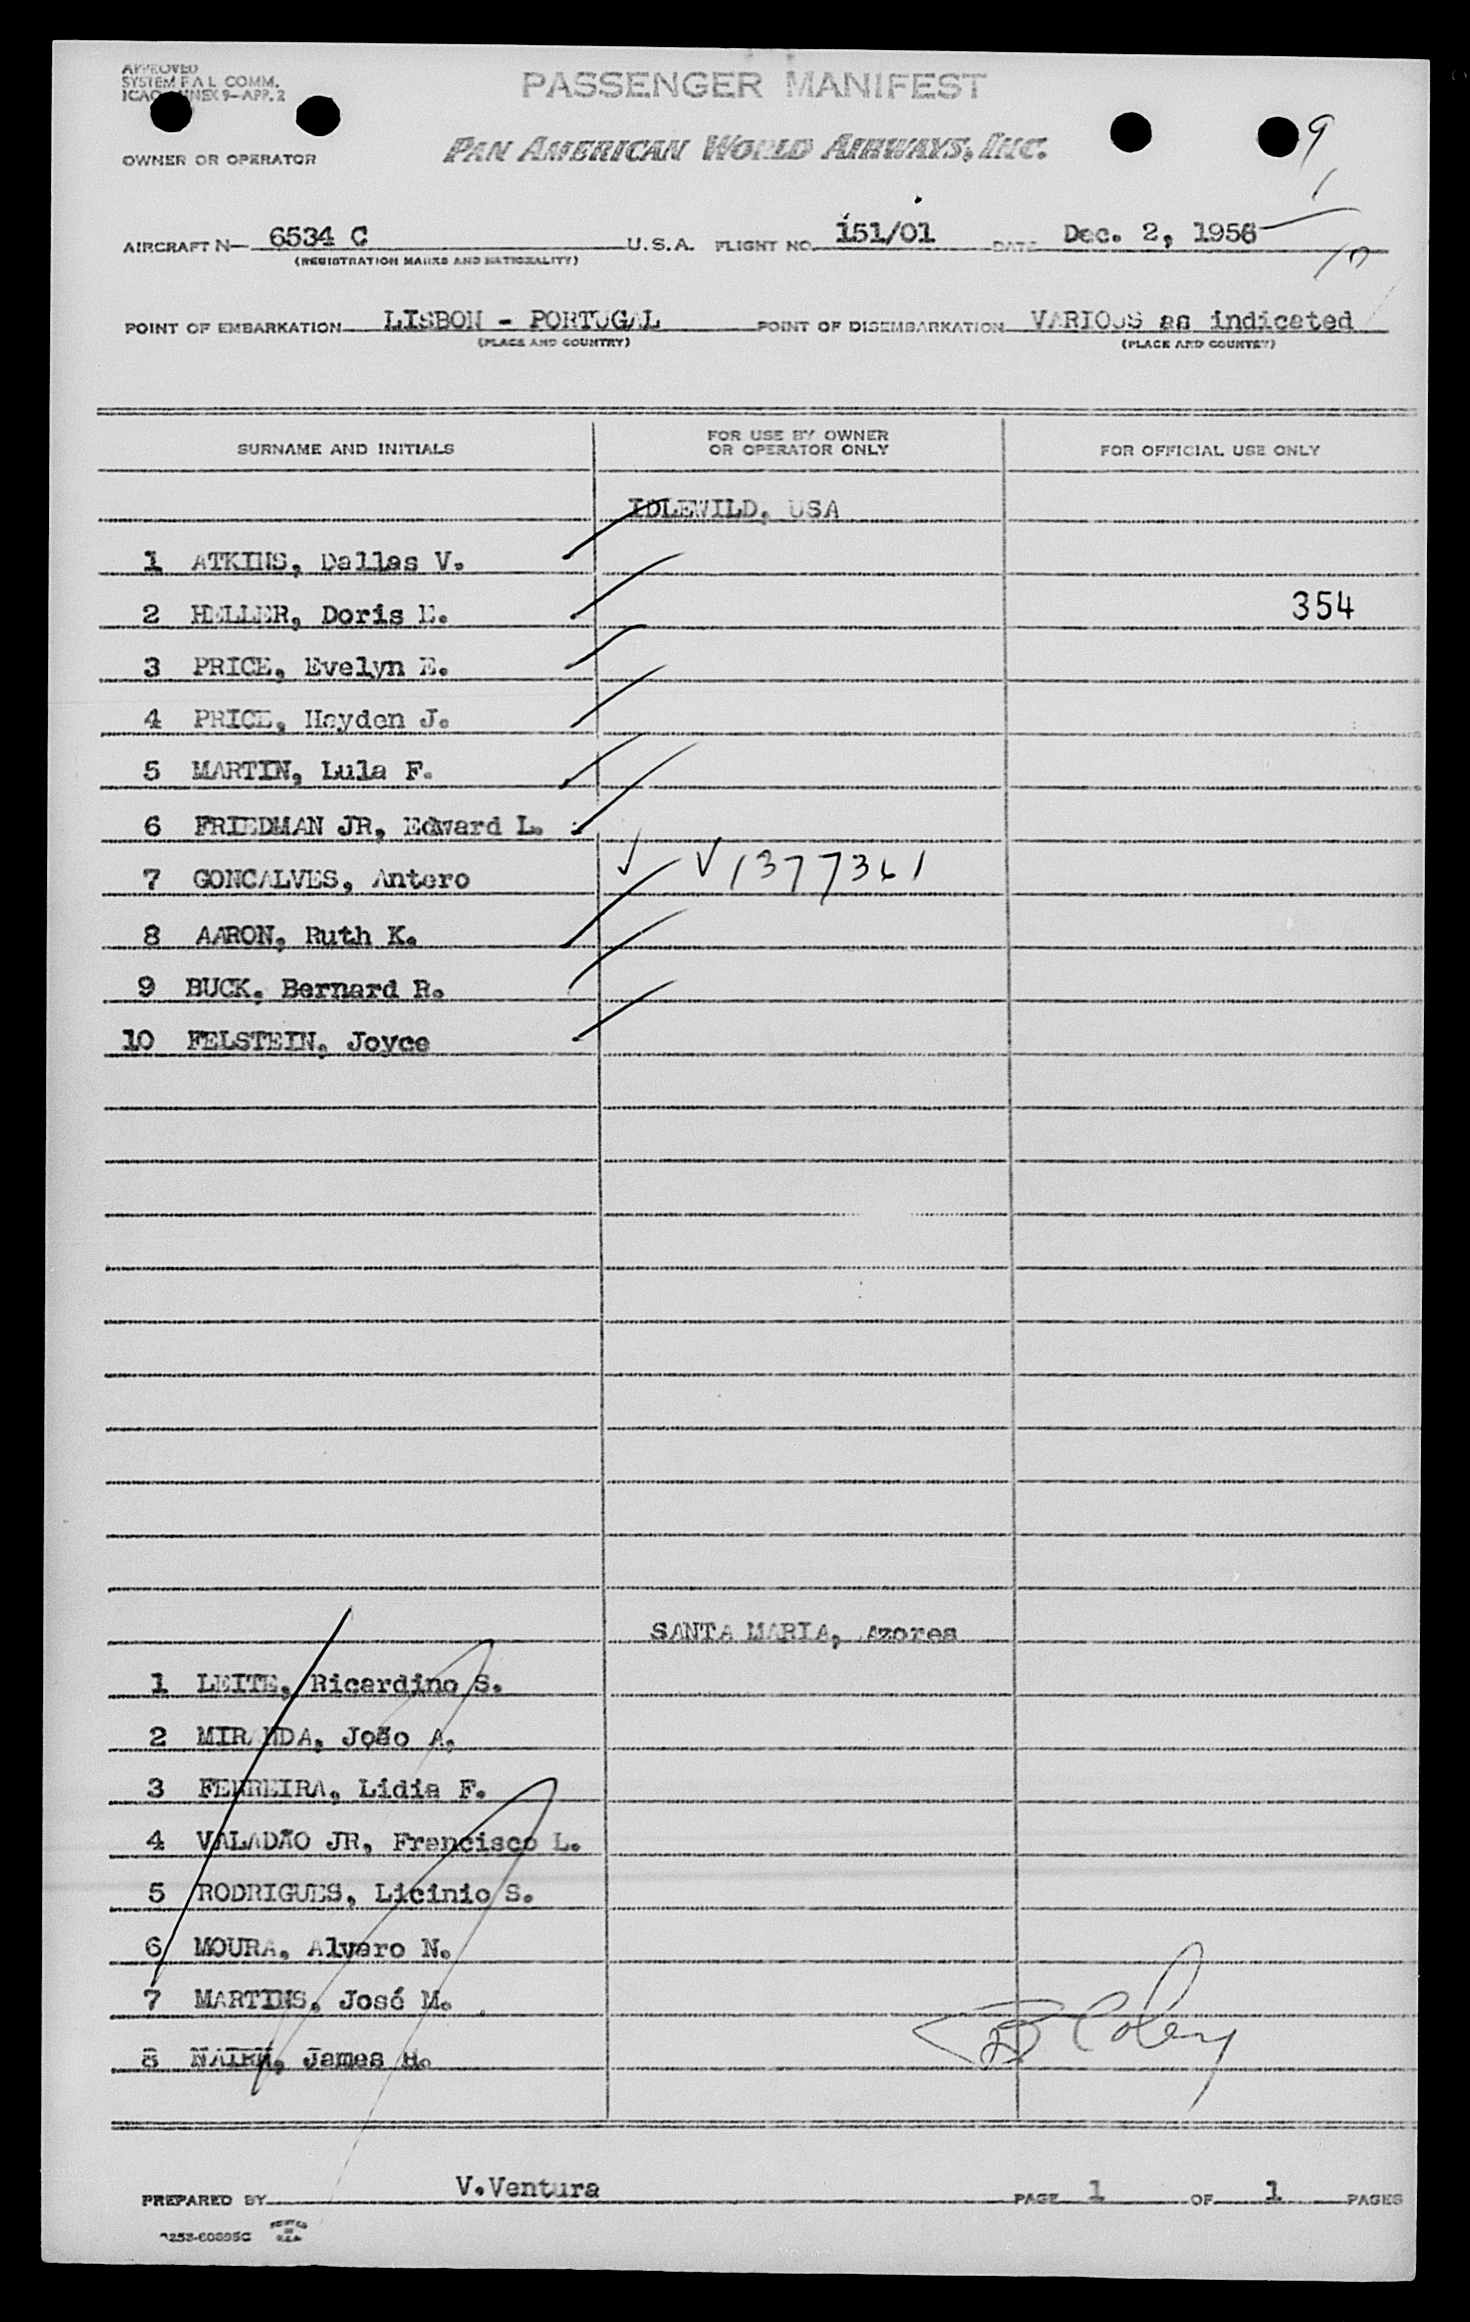 APPROVED
SYSTEM F A L COMM.
ICAO ANNEX 9-APP. 2
PASSENGER MANIFEST
9
OWNER OR OPERATOR PAN AMERICAN WORLD AIRWAYS, INC.
1
AIRCRAFT N— 6534 C U.S.A. FLIGHT NO. 151/01 DATE Dec. 2, 1956
(REGISTRATION MARKS AND NATIONALITY)
10
POINT OF EMBARKATION LISBON - PORTUGAL POINT OF DISEMBARKATION VARIOUS as indicated
(PLACE AND COUNTRY) (PLACE AND COUNTRY)
SURNAME AND INITIALS FOR USE BY OWNER OR OPERATOR ONLY FOR OFFICIAL USE ONLY
IDLEWILD, USA
1 ATKINS, Dallas V.
2 HELLER, Doris E. 354
3 PRICE, Evelyn E.
4 PRICE, Hayden J.
5 MARTIN, Lula F.
6 FRIEDMAN JR, Edward L.
7 GONCALVES, Antero ✓ V1377361
8 AARON, Ruth K.
9 BUCK, Bernard R.
10 FELSTEIN, Joyce
SANTA MARIA, Azores
1 LEITE, Ricardino S.
2 MIRANDA, João A.
3 FERREIRA, Lidia F.
4 VALADÃO JR, Francisco L.
5 RODRIGUES, Licinio S.
6 MOURA, Alvaro N.
7 MARTINS, José M.
8 NAIRN, James H.
PREPARED BY V.Ventura PAGE 1 OF 1 PAGES
PRINTED IN U.S.A.